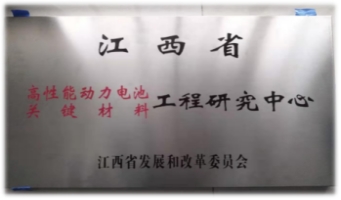 江西省
高性能动力电池
关键材料
工程研究中心
江西省发展和改革委员会